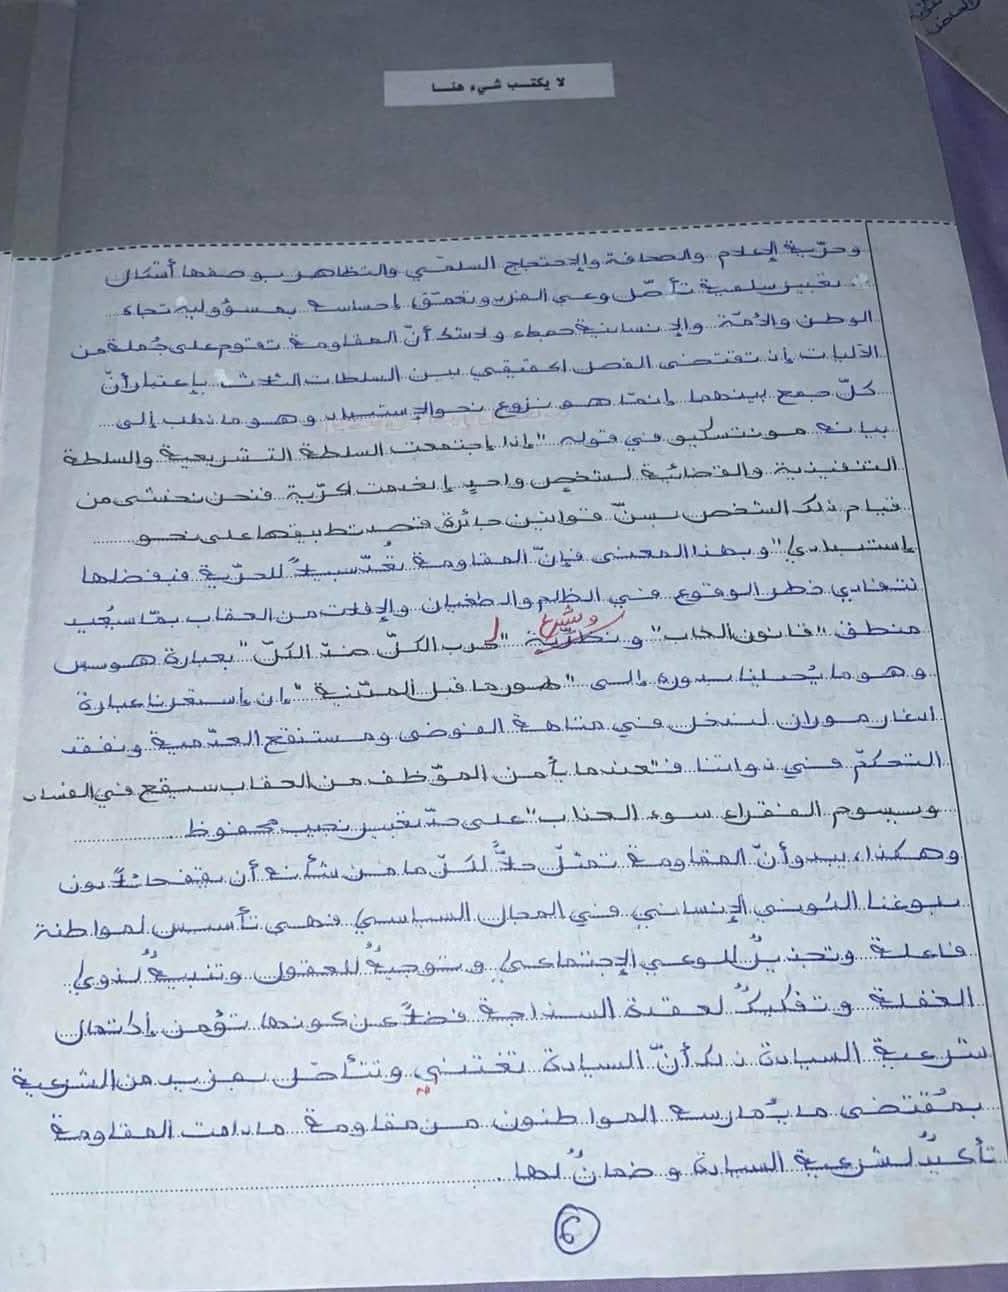 لا يكتب شيء هنا
وحرّية الإعلام والصحافة والإحتجاج السلمي والتظاهر بوصفها أشكال
تعبير سلمية تأصّل وعي الفرد وتعمّق إحساسه بمسؤوليته تجاه
الوطن والأمّة والإنسانية جمعاء ولا شك أنّ المقاومة تقوم على جُملة من
الآليات إذ تقتضي الفصل الحقيقي بين السلطات الثلاث بإعتبار أنّ
كلّ جمع بينهما إنّما هو نزوع نحو الإستبداد وهو ما ذهب إلى
بيانه مونتسكيو في قوله "إذا إجتمعت السلطة التشريعية والسلطة
التنفيذية والقضائية لشخص واحدٍ إنعدمت الحرّية فنحن نخشى من
قيام ذلك الشخص بسنّ قوانين جائرة قصد تطبيقها على نحو
إستبدادي" وبهذا المعنى فإنّ المقاومة تعدّ سبيلاً للحرّية فبفضلها
نتفادى خطر الوقوع في الظلم والطغيان والإفلات من العقاب بمّا سيُعيد
منطق "قانون الغاب" و نظريّة "حرب الكلّ ضدّ الكلّ" بعبارة هوبس
ويشرع
وهو ما يُحيلنا بدوره إلى "طور ما قبل المدنية" إن إستعرنا عبارة
ادغار موران لندخل في متاهة الفوضى ومستنقع العدمية ونفقد
التحكمّ في ذواتنا فـ"عندما يأمن الموّظف من العقاب سيقع في الفساد
ويسوم الفقراء سوء العذاب" على حدّ تعبير نجيب محفوظ
وهكذا، يبدو أنّ المقاومة تمثلّ حلاًّ لكلّ ما من شأنه أن يقف حائلاً دون
بلوغنا الكوني الإنساني في المجال السياسي فهي تأسيس لمواطنة
فاعلة وتجذيرٌ للوعي الإجتماعي وتوجيهٌ للعقول وتنبيهٌ لذوي
الغفلة وتفكيكٌ لعقدة السذاجة فضلاً عن كونها تؤمن إكتمال
شرعية السيادة ذلك أنّ السيادة تغتني وتتأصّل بمزيد من الشرعية
بمُقتضى ما يُمارسه المواطنون من مقاومة ما دامت المقاومة
تأكيدٌ لشرعية السيادة وضمانٌ لها.
6